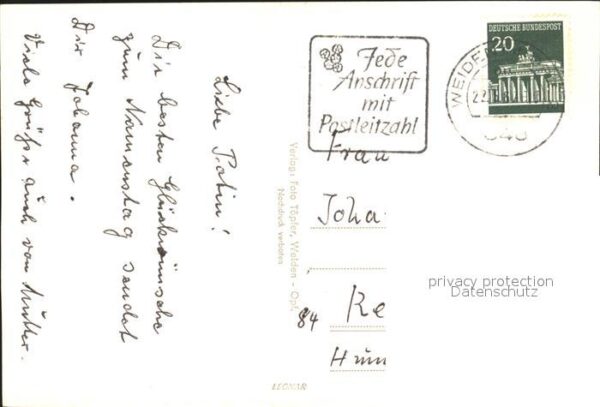 Liebe Patin!
Die besten Glückwünsche
zum Namenstag sendet
Dir Johanna.
Viele Grüße auch von Mutter.
Jede
Anschrift
mit
Postleitzahl
DEUTSCHE BUNDESPOST
20
WEIDEN
Verlag: Foto Töpfer, Weiden - Opf.
Nachdruck verboten
Frau
Joha
84 Re
Hum
privacy protection
Datenschutz
LEONAR